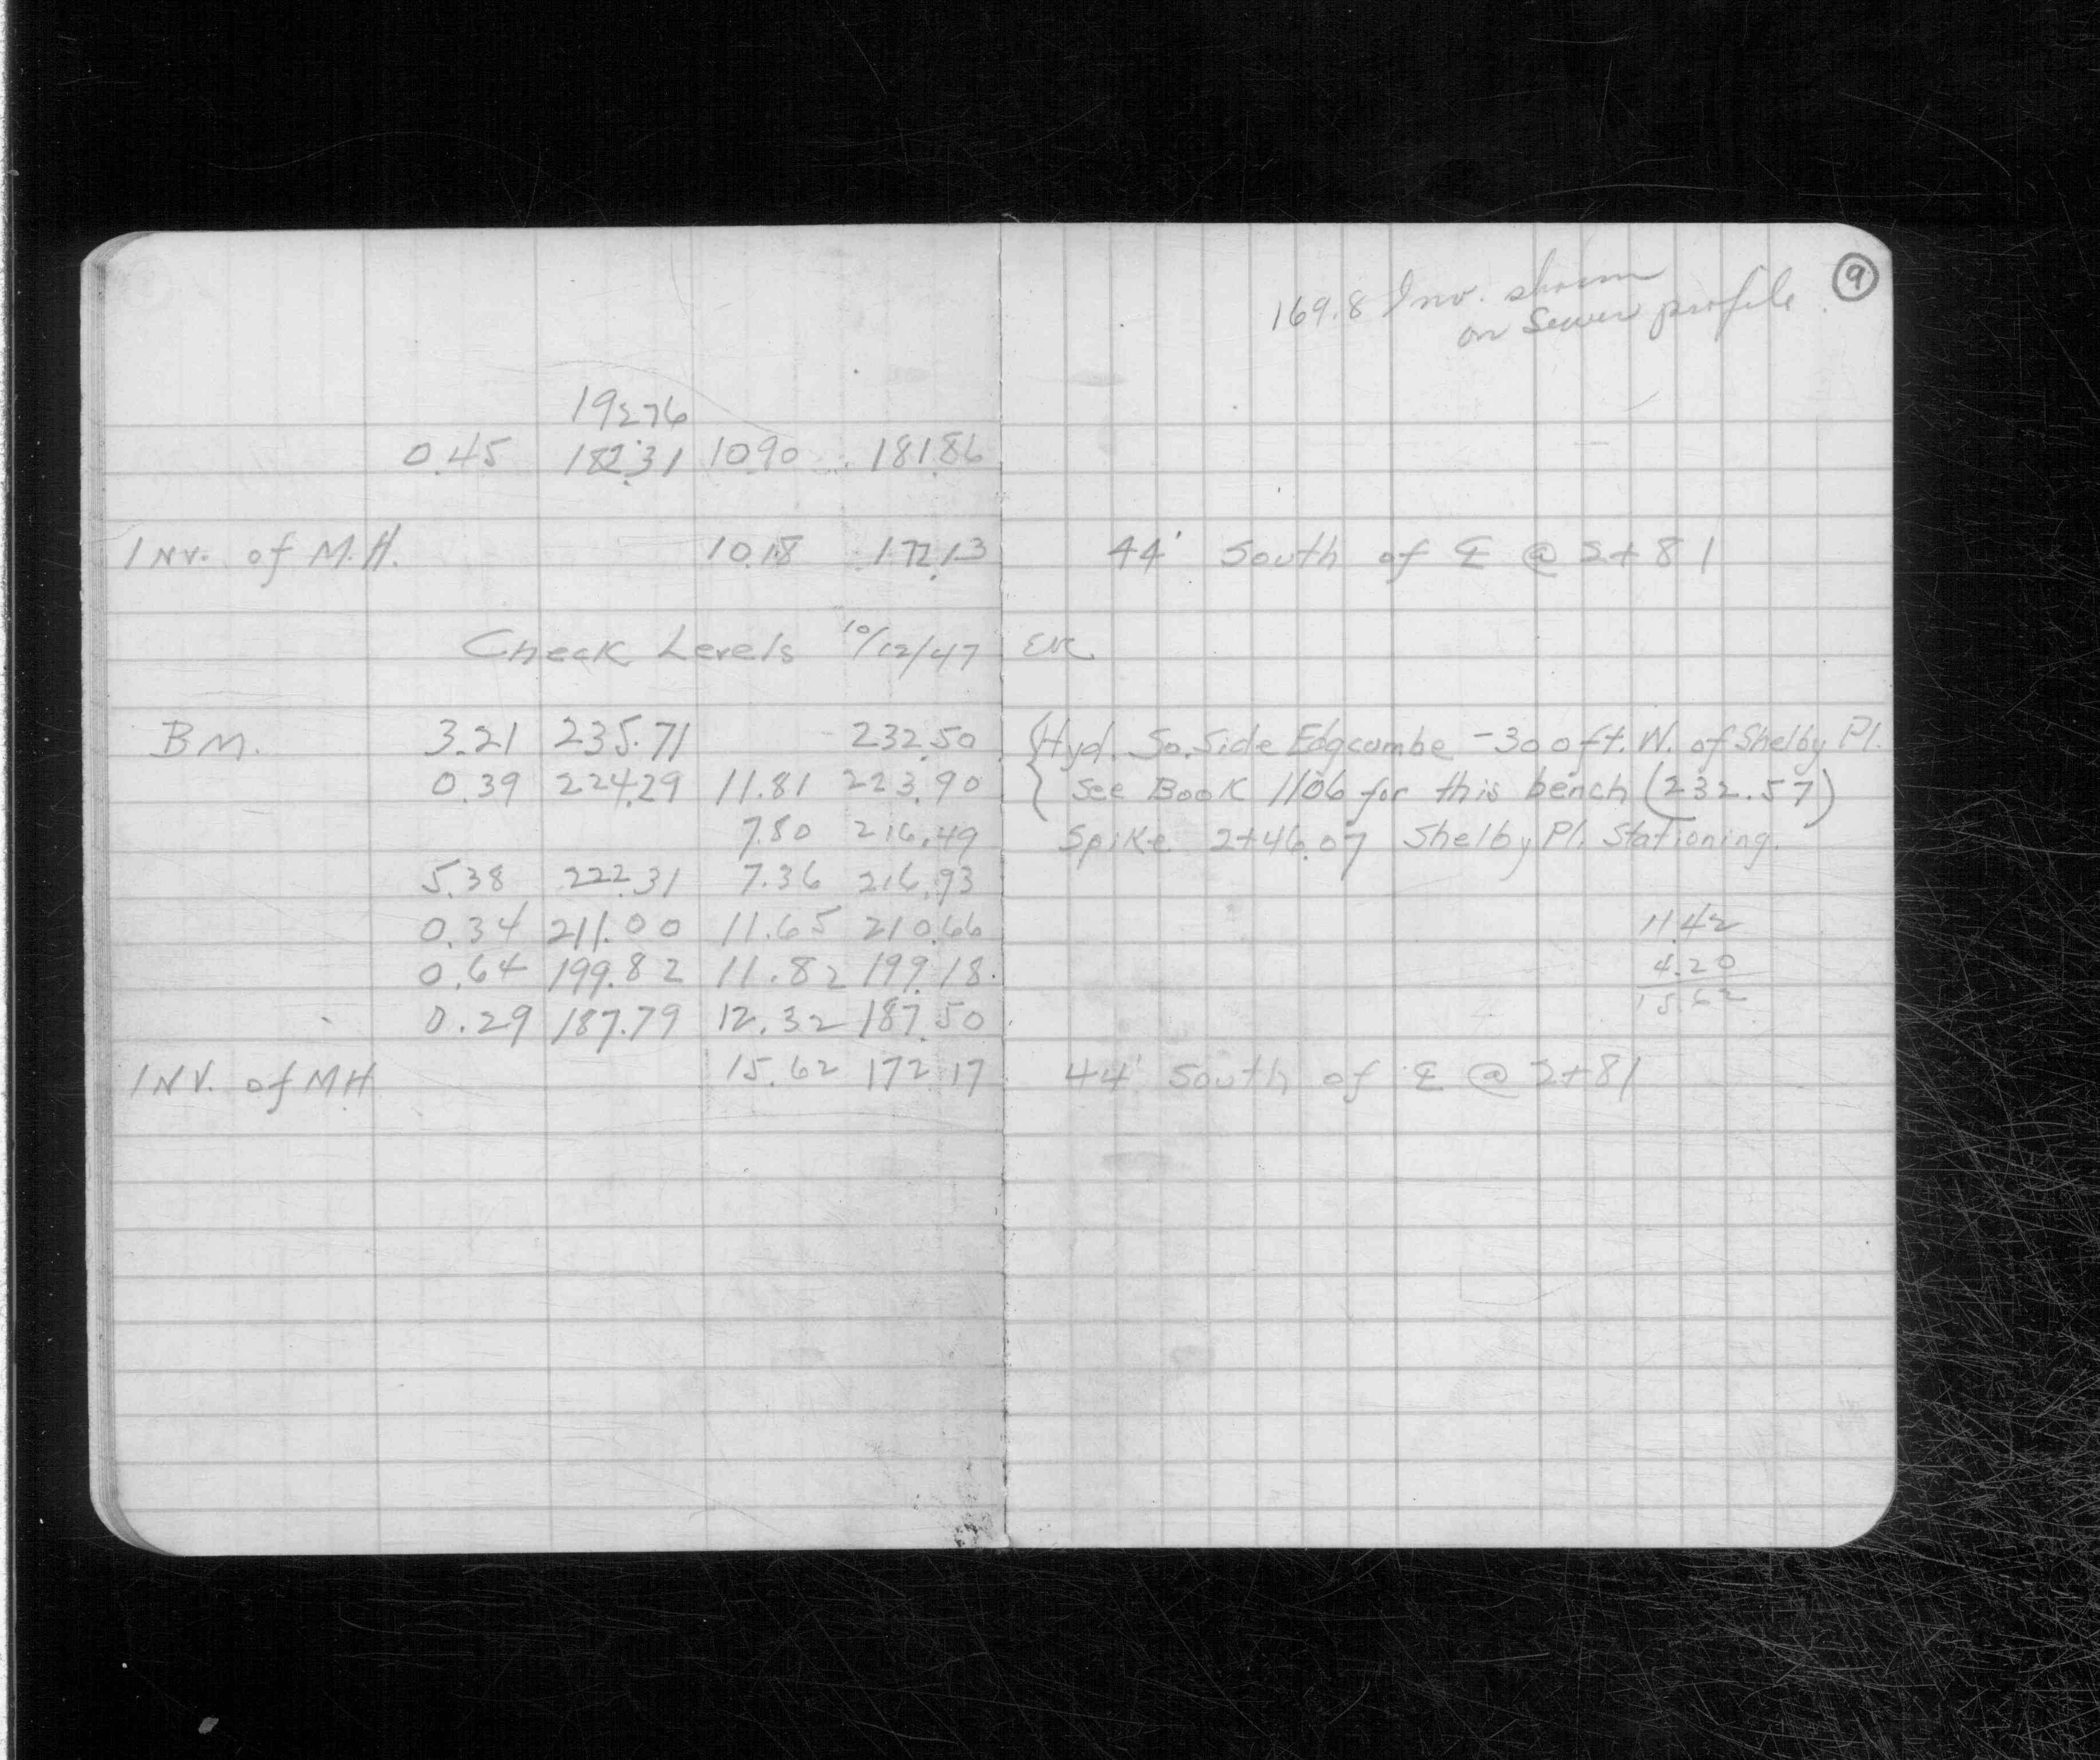 9
169.8 Inv. shown
on Sewer profile
192.76
0.45 182.31 10.90 181.86
INV. of M.H. 10.18 172.13 44' South of ℄ @ 2+81
Check Levels 10/12/47
BM. 3.21 235.71 232.50 Hyd. So. Side Edgcumbe -300ft. W. of Shelby Pl.
0.39 224.29 11.81 223.90 See Book 1106 for this bench (232.57)
7.80 216.49 Spike 2+46.07 Shelby Pl. Stationing.
5.38 222.31 7.36 216.93
0.34 211.00 11.65 210.66 11.42
0.64 199.82 11.82 199.18 4.20
0.29 187.79 12.32 187.50 15.62
INV. of MH 15.62 172.17 44' South of ℄ @ 2+81